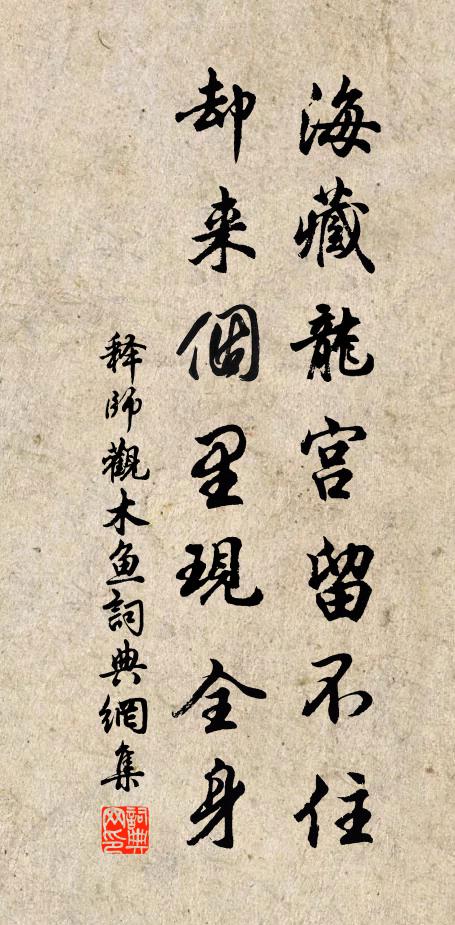 海藏龍宮留不住
却来個里現全身
释師觀木鱼詞典網集
詞典网印